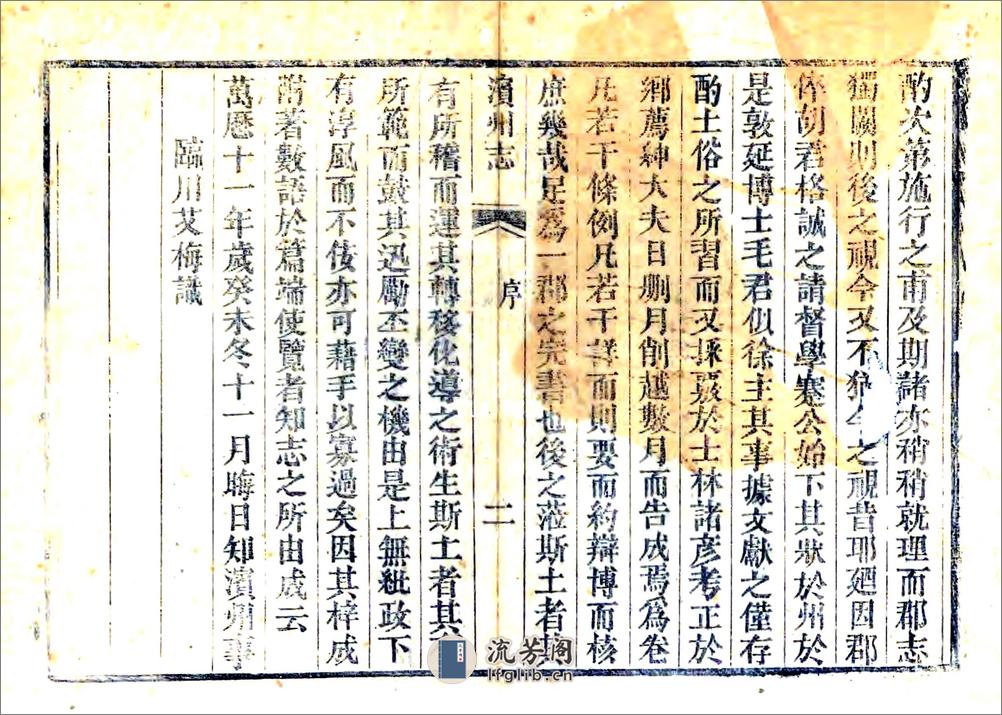 酌次第施行之甫及期諸亦稍稍就理而郡志
獨闕則後之視今又不猶今之視昔耶廼因郡
倅胡君格誠之請督學蹇公始下其狀於州於
是敦延博士毛君似徐主其事據文獻之僅存
酌土俗之所習而又採裒於士林諸彥考正於
鄉薦紳大夫日刪月削越數月而告成焉為卷
凡若干條例凡若干詳而則要而約辯博而核
庶幾哉足為一郡之完書也後之蒞斯土者其
濱州志 序 二
有所稽而運其轉移化導之術生斯土者其
所範而鼓其迅勵丕變之機由是上無紕政下
有淳風而不佞亦可藉手以寡過矣因其梓成
附著數語於篇端使覽者知志之所由成云
萬曆十一年歲癸未冬十一月晦日知濱州事
臨川艾梅識
流芳閣
lfglib.cn